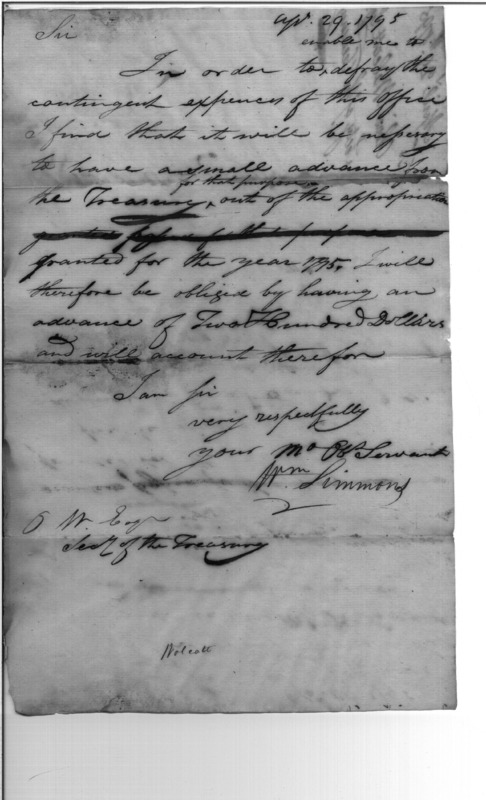 Apr. 29. 1795
Sir
enable me to
In order to, defray the
contingent expences of this office
I find that it will be nessesary
to have a small advance from
for that purpose
the Treasury, out of the appropriation
granted for the year 1795, I will
therefore be obliged by having an
advance of Two Hundred Dollars
and will account therefor
I am Sir
very respectfully
your Mo Ob Servant
Wm Simmons
O W. Esqr
Secy of the Treasury
Wolcott